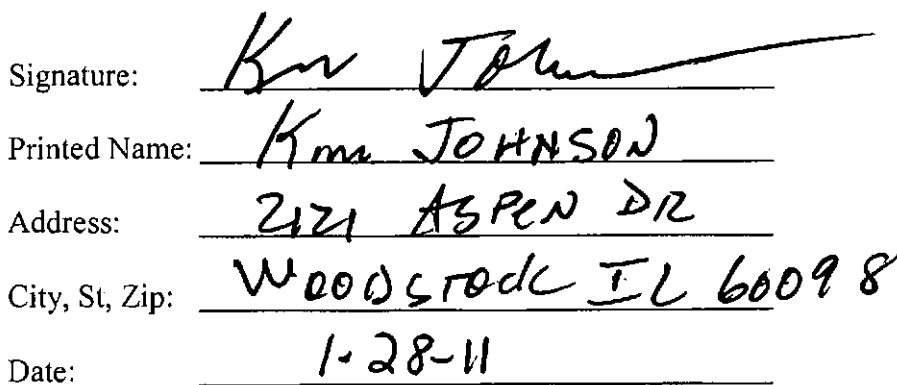 Signature:
Printed Name: JOHNSON
Address: 2121 ASPEN DR
City, St, Zip: WOODSTOCK IL 60098
Date: 1-28-11